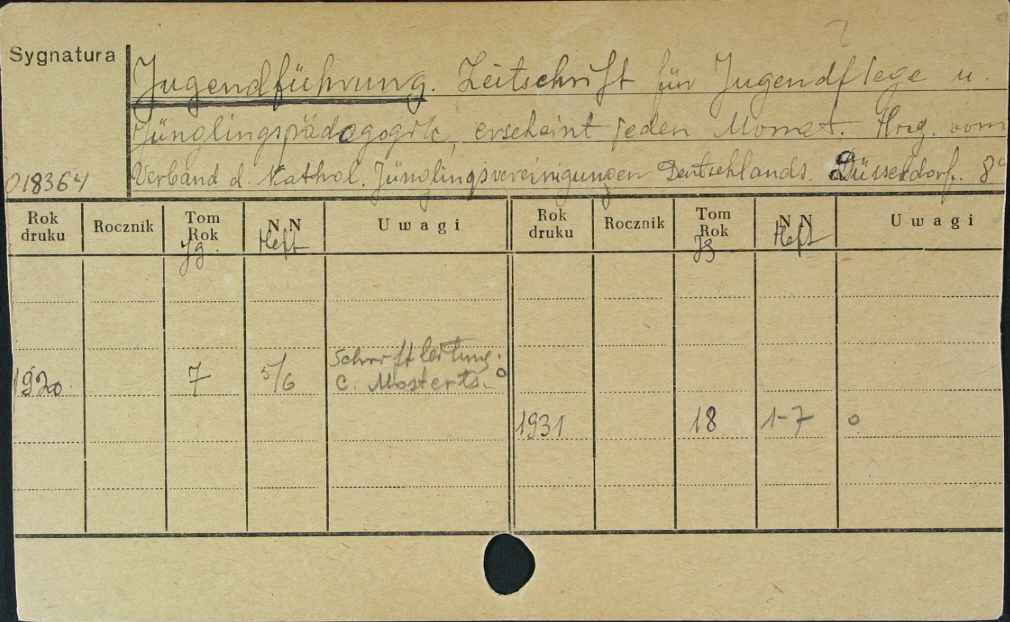 Sygnatura
Jugendführung. Zeitschrift für Jugendpflege u.
Jünglingspädagogik, erscheint jeden Monat. Hrsg. vom
018364 Verband d. Kathol. Jünglingsvereinigungen Deutschlands. Düsseldorf. 8°
Rok druku Rocznik Tom Rok Jg. N.N Heft Uwagi Rok druku Rocznik Tom Rok Jg N.N Heft Uwagi
Schriftleitung:
1920 7 5/6 C. Mosterts. o
1931 18 1-7 o